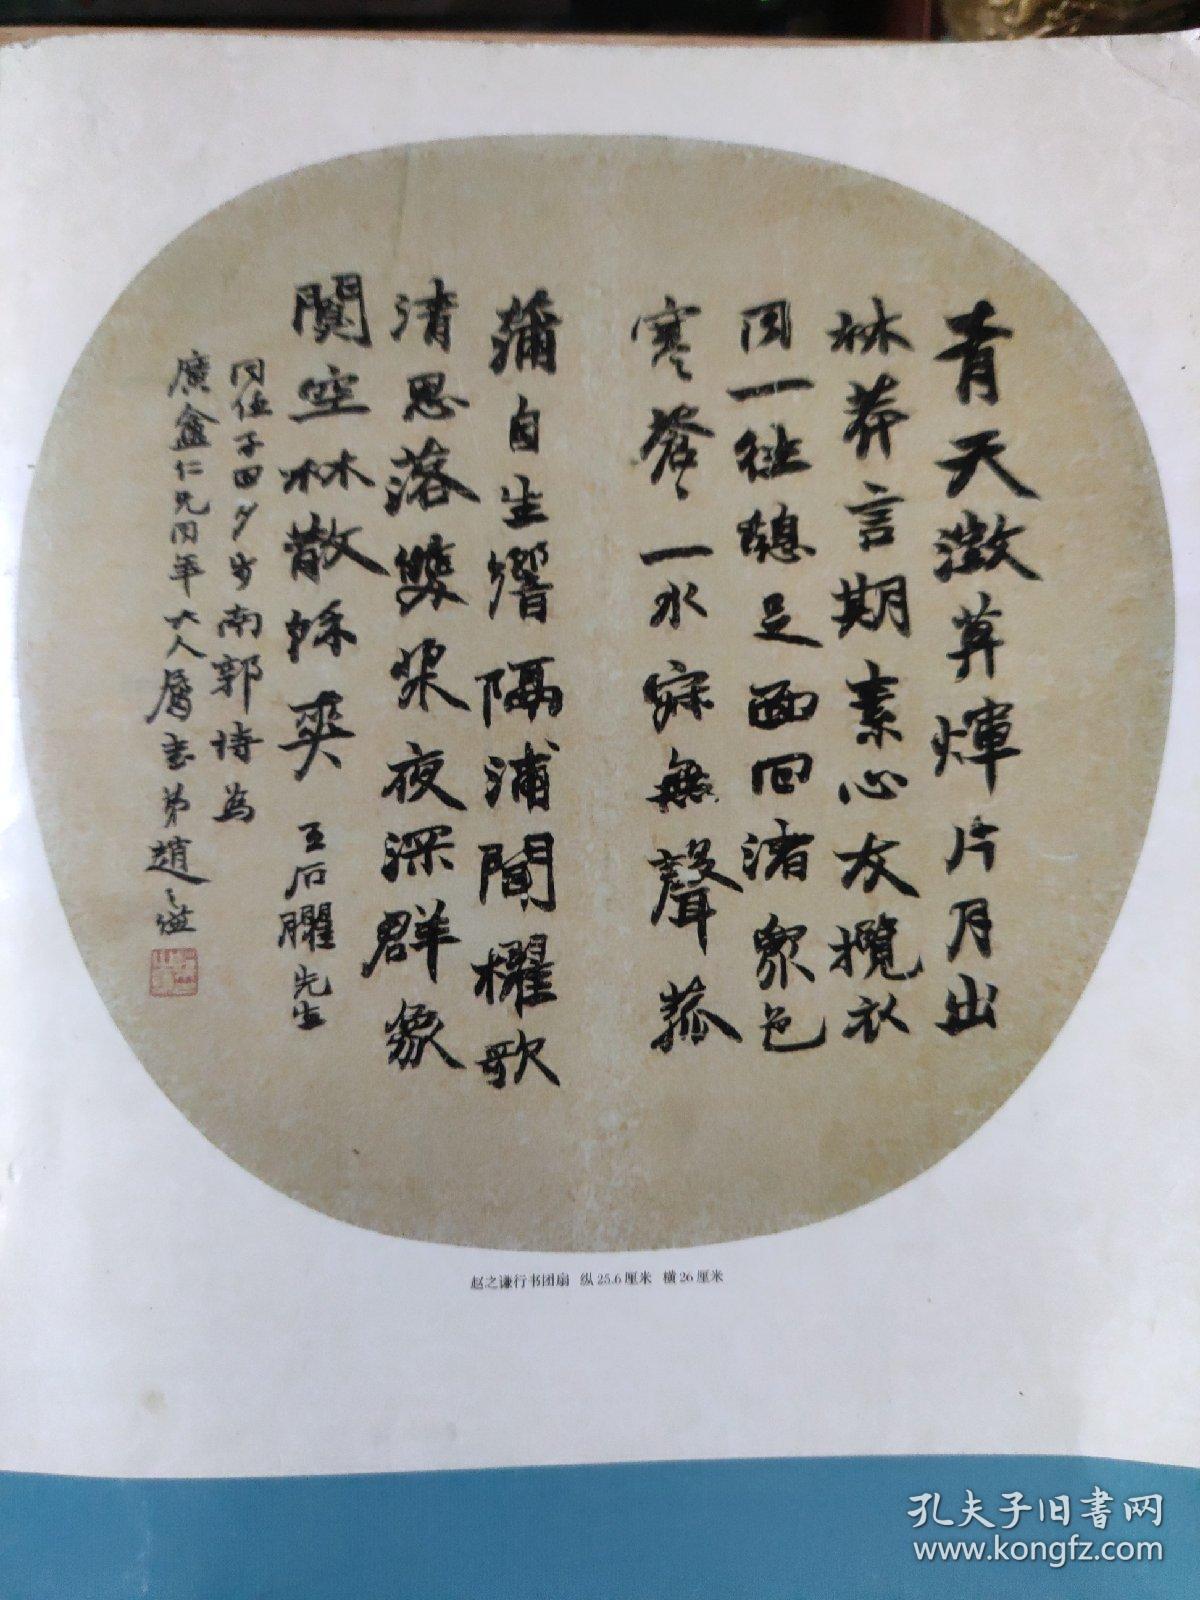 青天澂莫煇片月出
林莽言期素心友攬衣
同一往憩足面回渚眾色
寒寒磬磬一水寂無聲菰
蒲自生響隔浦聞櫂歌
清思落雙槳夜深群象
闃空林散餘爽 王石臞先生
同伍子田夕步南郭詩為
廣鑫仁兄同年大人屬書弟趙之謙
赵之谦行书团扇 纵25.6厘米 横26厘米
孔夫子旧书网
www.kongfz.com